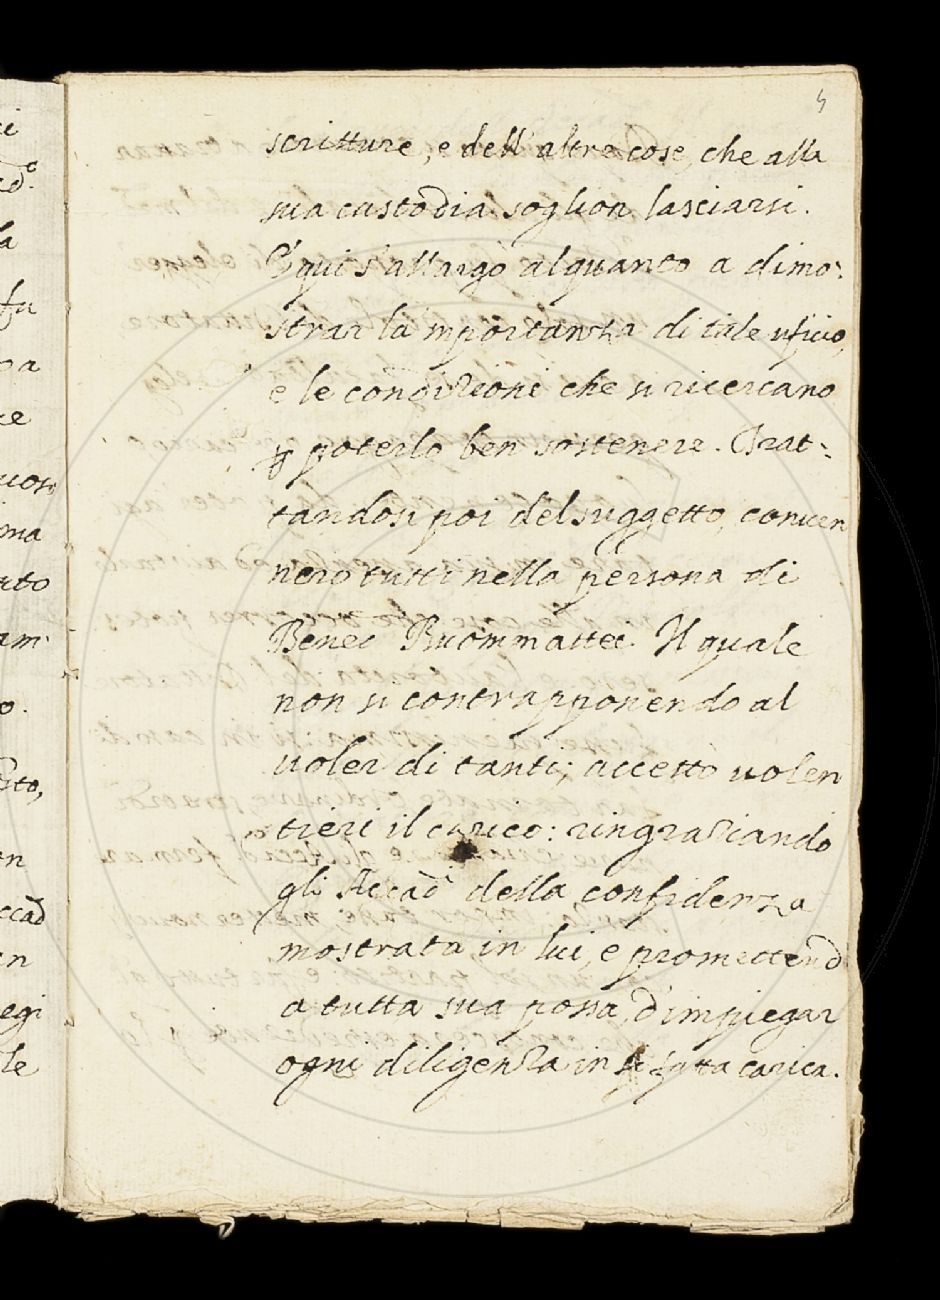 5
scritture, e dell'altre cose, che alla
sua custodia soglion lasciarsi.
E qui s'allargò alquanto a dimo:
strar la mportanza di tale uficio,
e le condizioni che si ricercano
ꝑ poterlo ben sostenere. Trat:
tandosi poi del suggetto, conven
nero tutti nella persona di
Benec Buommattei. Il quale
non si contrapponendo al
voler di tanti; accettò volen
tieri il carico: ringraziando
gli Accad.ⁱ della confidenza
mostrata in lui, e promettend
a tutta sua possa, d'impiegar
ogni diligenza in sì fatta carica.
ci
cd.º
la
fu
pa
ce
ma
uto
am
o.
sto,
en
ccad
en
egi
le